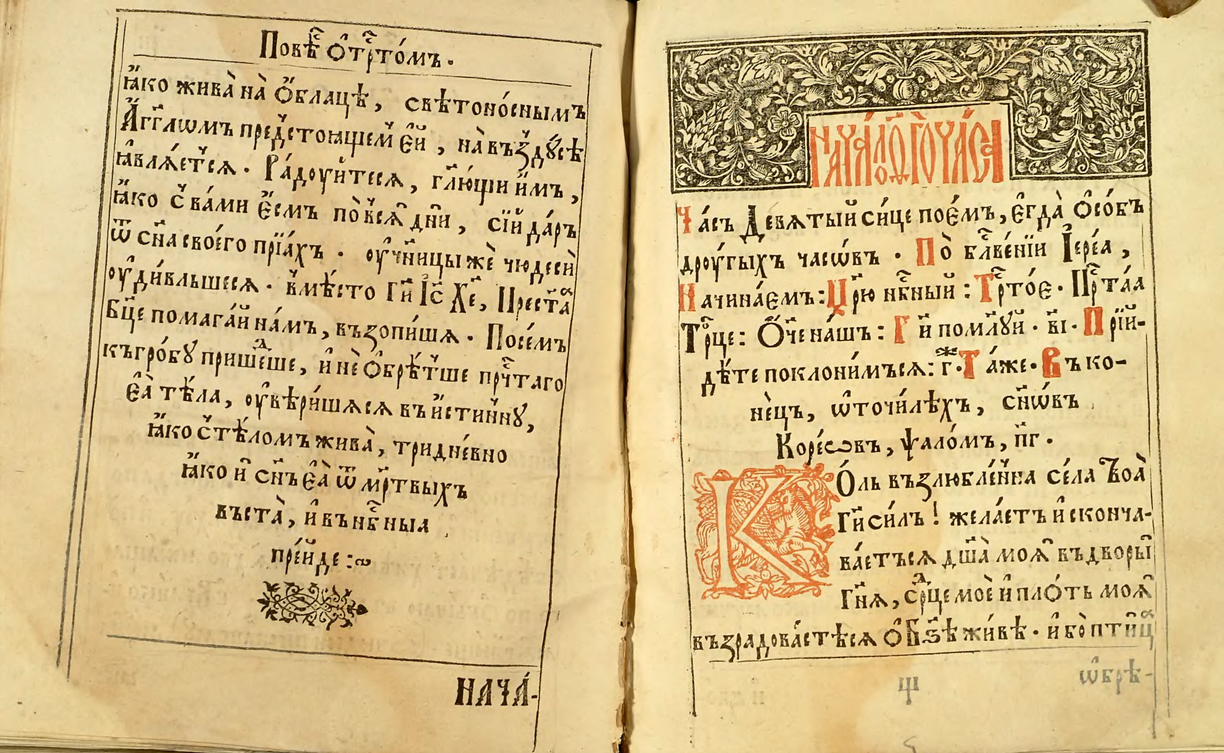 Повѣ́ⷭ҇ О҆ трⷭ҇то́мъ.
ꙗ҆́ко жива̀ на О҆́блацѣ, свѣтоно́снымъ
А҆́гг҃лѡмъ предⸯстоꙗщемⸯ е҆́й, на въꙁⸯдꙋ́сѣ
ꙗ҆влѧ́етсѧ. Ра́доуитесѧ, гл҃ющи и҆́мъ,
ꙗ҆́ко с̾ ва́ми є҆́смъ по всѧ̑ дн҃и, сі́й да́ръ
ѿ сн҃а своего̀ прїа́хъ. оу҆чн҃ицы же чюдесѝ
оу҆ди́вльшесѧ. в̾мѣ́сто Гⷭ҇и І҆с Хе҃, Прест҃аⷢ҇
Бц҃е помага́й на́мъ, въꙁопи́шѧ. Посе́мъ
къ гро́бꙋ прише́ⷣше, и҆ не О҆брѣ́тⸯше прⷱ҇таго
еѧ̀ тѣ́ла, оу҆вѣ́ришѧсѧ въ и҆́стиннꙋ,
ꙗ҆́ко с̾ тѣ́ломъ жива̀, тридне́вно
ꙗ҆́ко и҆ сн҃ъ еѧ̀ ѿ мр҃твыхъ
въста̀, и҆ въ нб҃ныꙗ
пре́йде:
НАЧА́-
НАЧА́ЛО Ѳ҃ГО ЧАСА̀
Ча́съ Девѧ́тый си́це пое́мъ, е҆гда̀ О҆со́бъ
дроу́гыхъ часѡ́въ. По бл҃ве́нїи І҆ере́а,
Начина́емъ: Цр҃ю нбⷭ҇ный: Трⷭ҇то́е. Прⷭ҇та́а
Трⷪ҇це: О҆́ч҃е на́шъ: Гⷭ҇и помлⷭ҇у́й. в҃і. Прїй-
дѣ́те поклони́мъсѧ: г҃.ⷤ Та́же. Въ ко-
не́цъ, ѡ҆ точи́лѣхъ, сн҃ѡ́въ
Коре́ѡвъ, ѱало́мъ, п҃г.
Ко́ль въꙁлюбле́нна се́ла Твоѧ̀
Гⷭ҇и си́лъ! жела́етъ и҆ сконча-
ва́етъсѧ дш҃а̀ моѧ̀ въ дворы̀
Гн҃ѧ, срⷣ҇це моѐ и҆ пло́ть моѧ̀
въꙁра́довастѣсѧ О҆ Бꙁ҃ѣ жи́вѣ. и҆́бо пти́цⷶ
ѱ
ѡ҆брѣ-